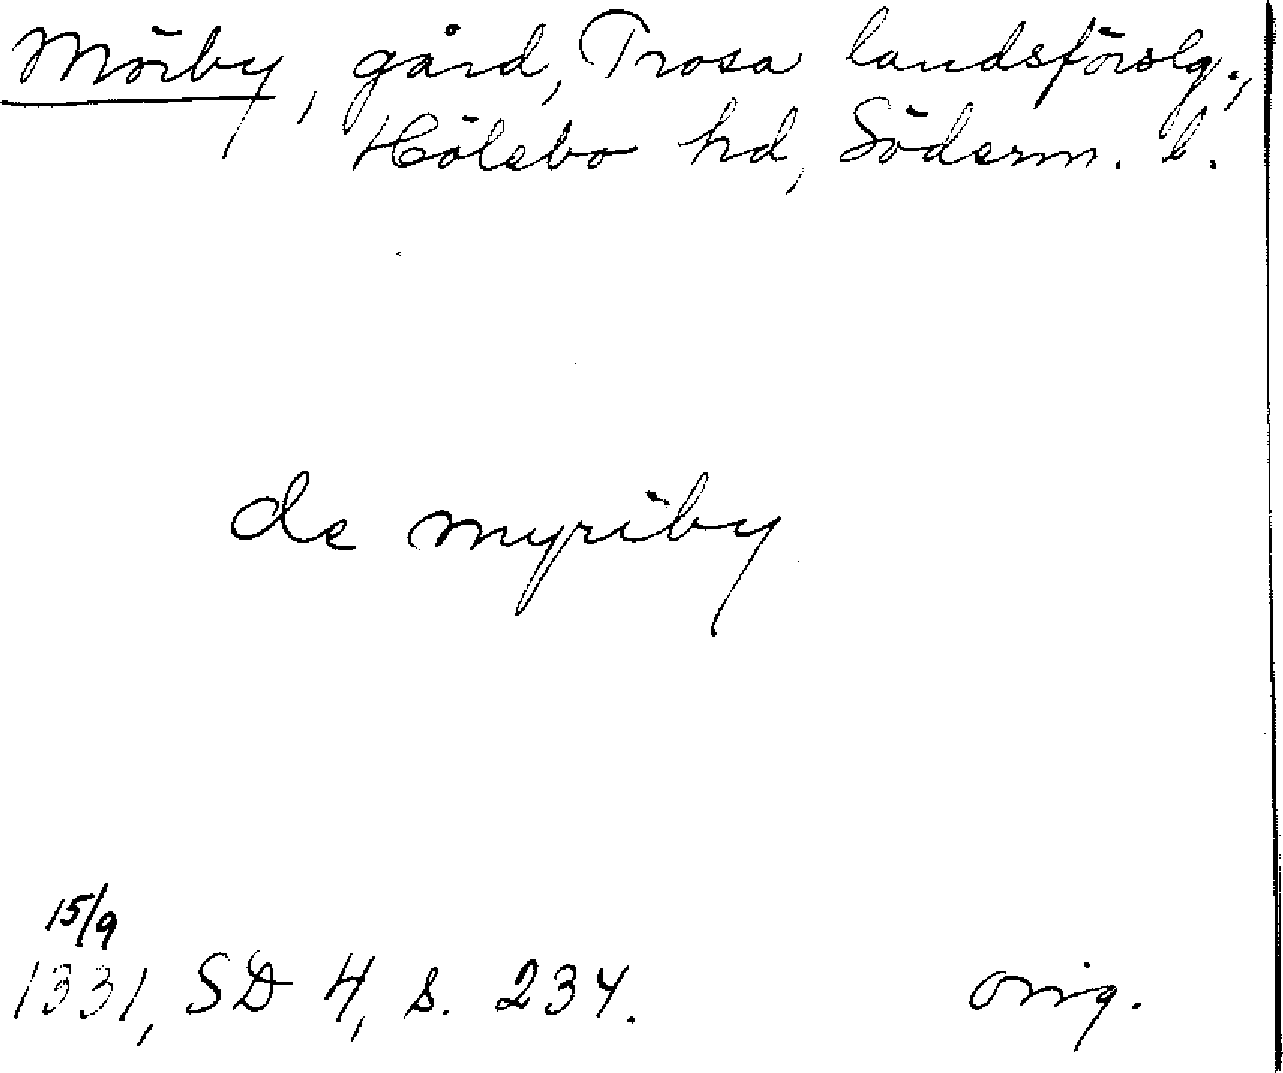 Mörby, gård, Trosa landsförslg.,
Hölebo hd, Söderm. l.
de myriby
15/9
1331, SD 4, s. 234.
orig.